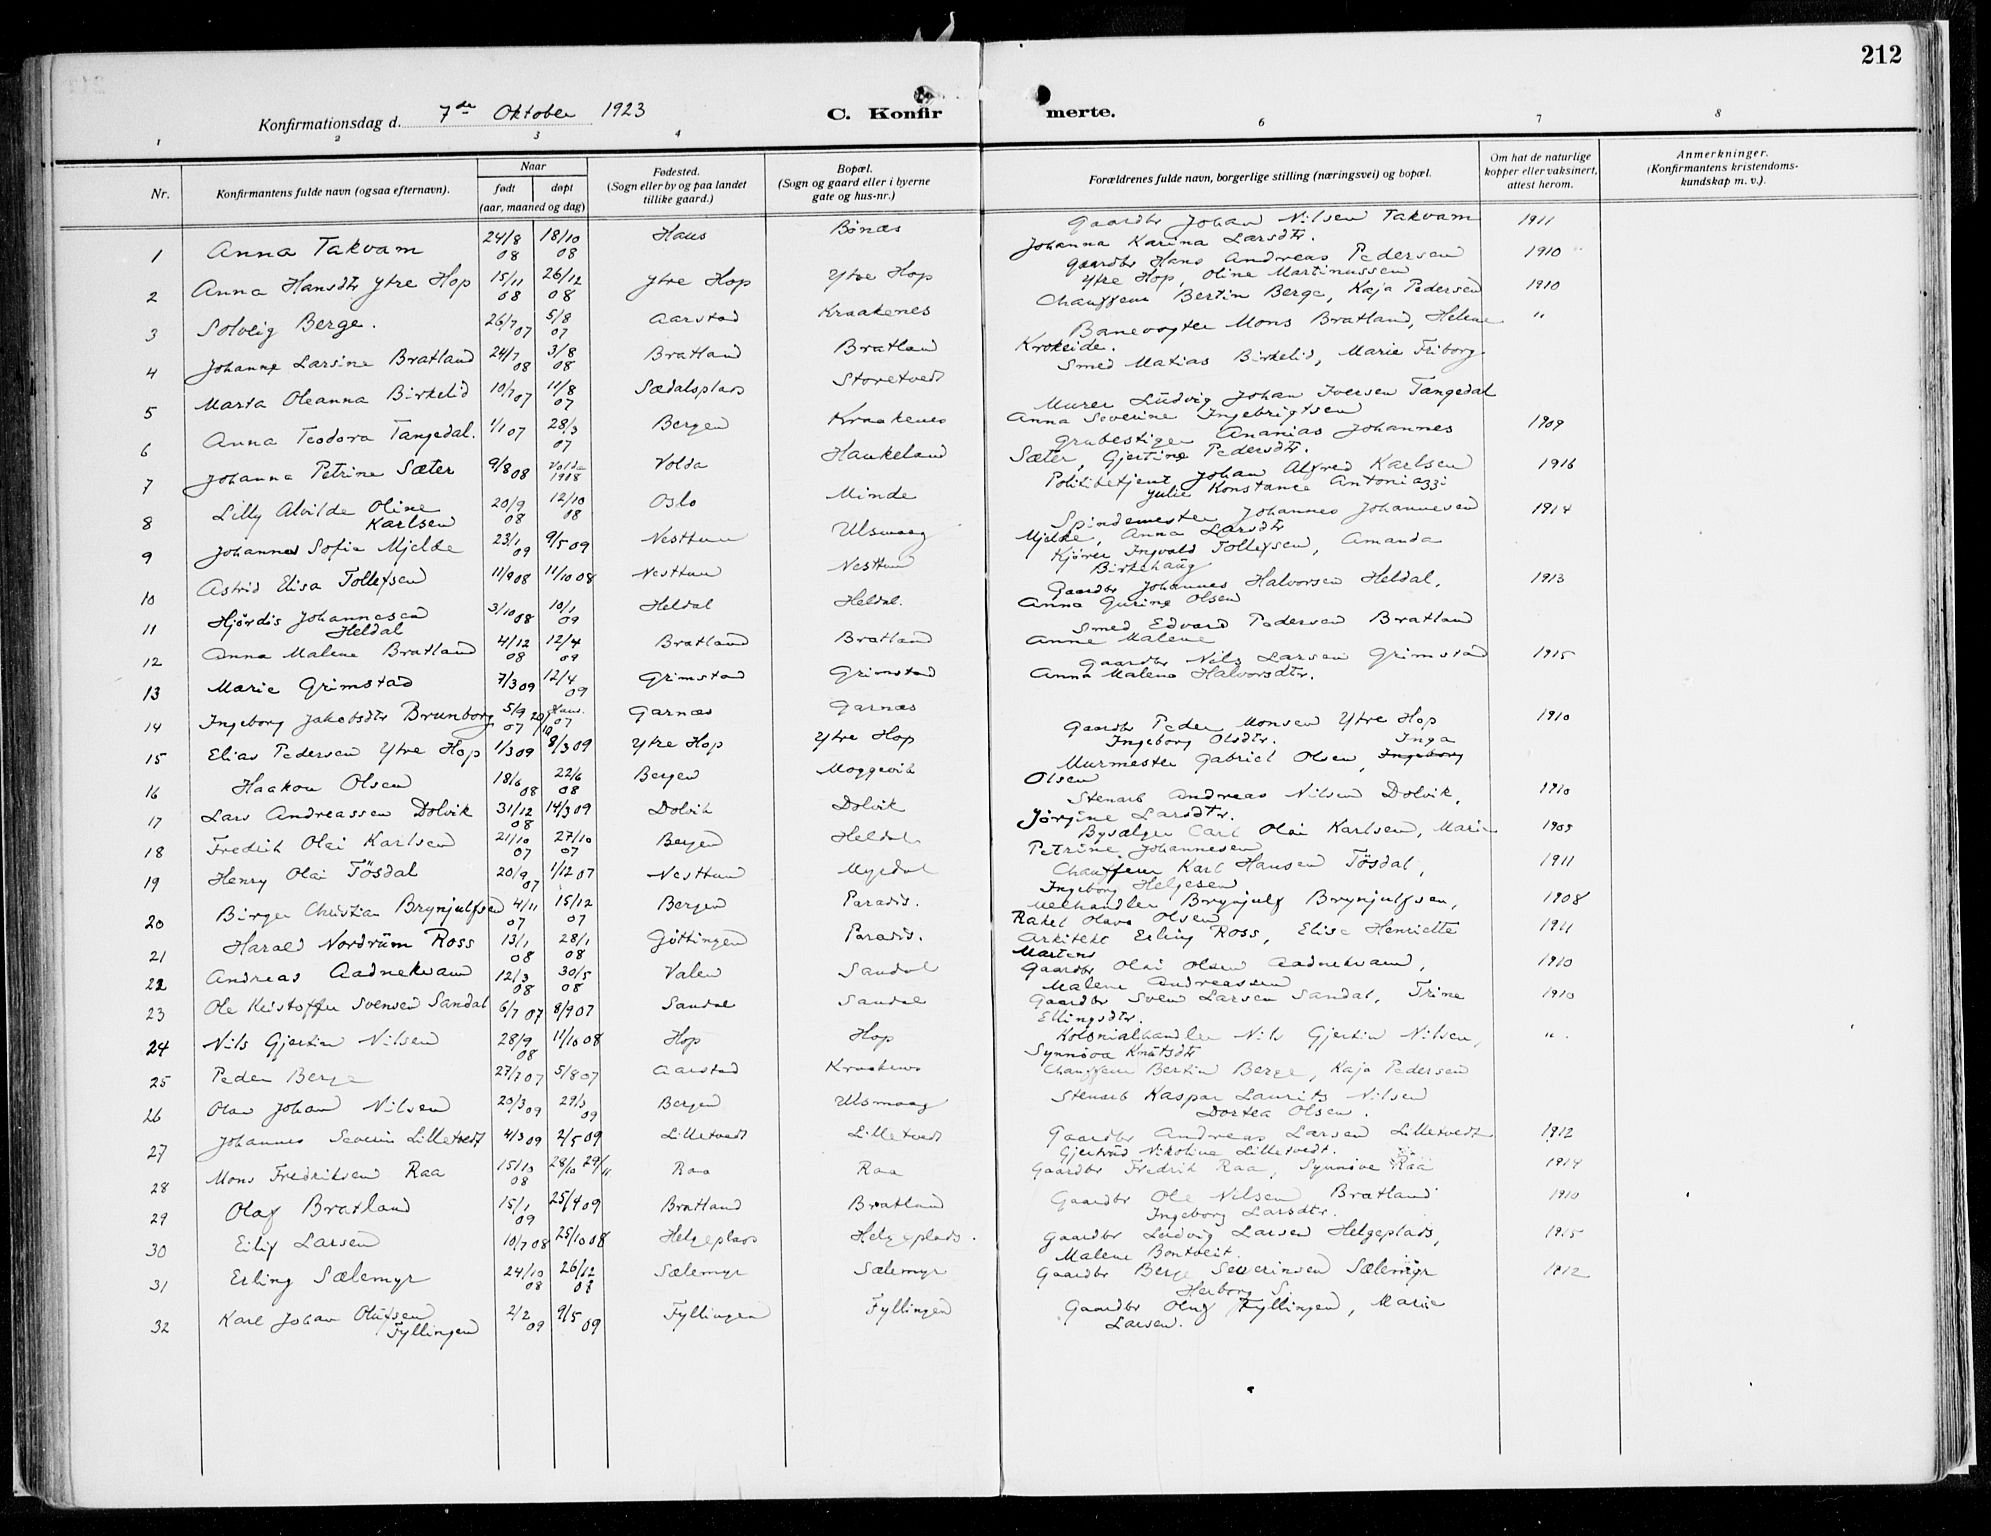 212
Konfirmationsdag d. 7de Oktober 1923
C. Konfirmerte.
1 2 3 4 6 7 8
Nr. Konfirmantens fulde navn (ogsaa efternavn). Naar født døpt (aar, maaned og dag) Fødested. (Sogn eller by og paa landet tillike gaard.) Bopæl. (Sogn og gaard eller i byerne gate og hus-nr.) Forældrenes fulde navn, borgerlige stilling (næringsvei) og bopæl. Om hat de naturlige kopper eller vaksinert, attest herom. Anmerkninger. (Konfirmantens kristendomskundskap m. v.).
1 Anna Takvam 24/8 08 18/10 08 Haus Bønæs Gaardbr Johan Nilsen Takvam 1911
Johanna Karina Larsdtr.
2 Anna Hansdtr Ytre Hop 15/11 08 26/12 08 Ytre Hop Ytre Hop Gaardbr Hans Andreas Pedersen 1910
Ytre Hop, Oline Martinussen
3 Solveig Berge. 26/7 07 5/8 07 Aarstad Kraakenes Chauffeur Bertin Berge, Kaja Pedersen 1910
4 Johanne Larsine Bratland 24/7 08 3/8 08 Bratland Bratland Banevogter Mons Bratland, Helene "
Krokeide.
5 Marta Oleanna Birkelid 10/7 07 11/8 07 Sædalsplads Storetvedt Smed Matias Birkelid, Marie Friborg
6 Anna Teodora Tangedal. 1/1 07 28/3 07 Bergen Kraakenes Murer Ludvig Johan Iversen Tangedal
Anna Severine Ingebrigtsen
7 Johanna Petrine Sæter 9/8 08 Volda 1908 Volda Haukeland Grubestiger Ananias Johannes 1909
Sæter, Gjertine Pedersdtr.
8 Lilly Alvilde Oline Karlsen 20/9 08 12/10 08 Oslo Minde Politibetjent Johan Alfred Karlsen 1916
Julie Konstance Antoniazzi
9 Johannes Sofie Mjelde 23/1 09 9/5 09 Nesttun Ulsmaag Spindemester Johannes Johannesen 1914
Mjelde, Anna Larsdtr
10 Astrid Elisa Tollefsen 11/9 08 11/10 08 Nesttun Nesttun Kjører Ingvald Tollefsen, Amanda
Birkehaug
11 Hjørdis Johannesen Heldal 3/10 08 10/1 09 Heldal Heldal. Gaardbr Johannes Halvorsen Heldal, 1913
Anna Gurine Olsen
12 Anna Malene Bratland 4/12 08 12/4 09 Bratland Bratland Smed Edvard Pedersen Bratland
Anne Malene
13 Marie Grimstad 7/3 09 12/4 09 Grimstad Grimstad Gaardbr Nils Larsen Grimstad 1915
Anna Malene Halvorsdtr.
14 Ingeborg Jakobsdtr Brunborg 5/9 07 20/10 Haus. 07 Garnæs Garnæs
15 Elias Pedersen Ytre Hop 1/3 09 8/3 09 Ytre Hop Ytre Hop Gaardbr Peder Monsen Ytre Hop 1910
Ingeborg Olsdtr.
16 Haakon Olsen 18/6 08 22/6 08 Bergen Moggevik Murmester Gabriel Olsen, Ingeborg Inga
Olsen
17 Lars Andreassen Dolvik 31/12 08 14/3 09 Dolvik Dolvik Stenarb Andreas Nilsen Dolvik, 1910
Jørgine Larsdtr.
18 Fredrik Olai Karlsen 21/10 07 27/10 07 Bergen Heldal Bysælger Carl Olai Karlsen, Marie 1909
Petrine Johannesen
19 Henry Olai Tøsdal 20/9 07 1/12 07 Nesttun Myrdal Chauffeur Karl Hansen Tøsdal, 1911
Ingeborg Helgesen
20 Birger Christian Brynjulfsen 4/11 07 15/12 07 Bergen Paradis. Brynjulf Brynjulfsen, 1908
Rakel Olava Olsen
21 Harald Nordrum Ross 13/1 08 28/1 08 Gøttingen Paradis. Arkitekt Erling Ross, Elise Henriette 1911
Martens
22 Andreas Aadnekvam 12/3 08 30/5 08 Valen Sandal Gaardbr Olai Olsen Aadnekvam, 1910
Malene Andreassen
23 Ole Kristoffer Svensen Sandal 6/7 07 8/9 07 Sandal Sandal Gaardbr Sven Larsen Sandal, Trine 1910
Ellingsdtr.
24 Nils Gjertin Nilsen 28/9 08 11/10 08 Hop Hop Kolonialhandler Nils Gjertin Nilsen, "
Synnøva Knutsdtr
25 Peder Berge 27/7 07 5/8 07 Aarstad Kraakenes Chauffeur Bertin Berge, Kaja Pedersen
26 Olav Johan Nilsen 20/3 09 29/3 09 Bergen Ulsmaag Stenarb Kaspar Laurits Nilsen
Dortea Olsen.
27 Johannes Severin Lilletvedt 4/3 09 2/5 09 Lilletvedt Lilletvedt Gaardbr Andreas Larsen Lilletvedt 1912
Gjertrud Nikoline Lilletvedt.
28 Mons Fredriksen Raa 15/10 08 28/10 29/11 Raa Raa Gaardbr Fredrik Raa, Synnøve Raa 1914
29 Olaf Bratland 15/1 09 25/4 09 Bratland Bratland Gaardbr Ole Nilsen Bratland 1910
Ingeborg Larsdtr.
30 Eilif Larsen 10/7 08 25/10 08 Helgeplads Helgeplads. Gaardbr Ludvig Larsen Helgeplads, 1915
Malene Bontveit.
31 Erling Sælemyr 24/10 08 26/12 08 Sælemyr Sælemyr Gaardbr Berge Severinsen Sælemyr 1912
Herborg S.
32 Karl Johan Olufsen Fyllingen 2/2 09 9/5 09 Fyllingen Fyllingen Gaardbr Oluf Fyllingen, Marie
Larsen.